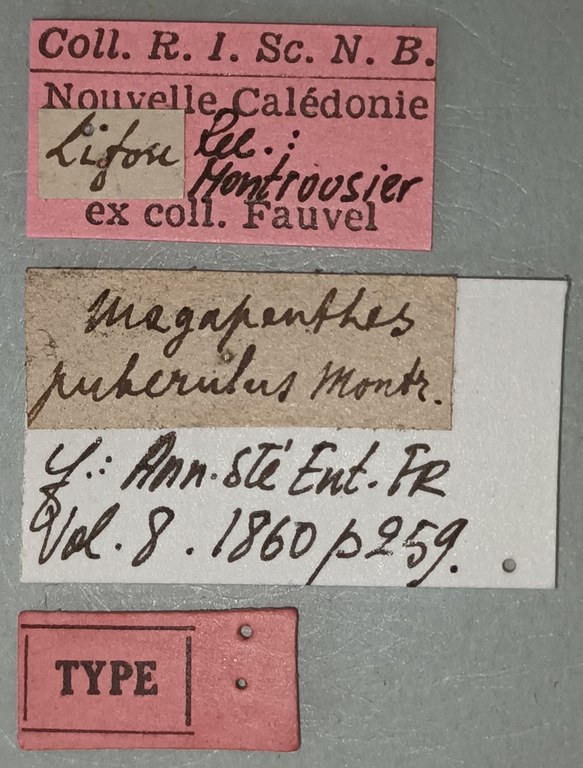 Coll. R. I. Sc. N. B.
Nouvelle Calédonie
Lifou Rec.:
Montrousier
ex coll. Fauvel
Megapenthes
puberulus Montr.
Ann. Sté Ent. FR
Vol. 8. 1860 p259.
TYPE